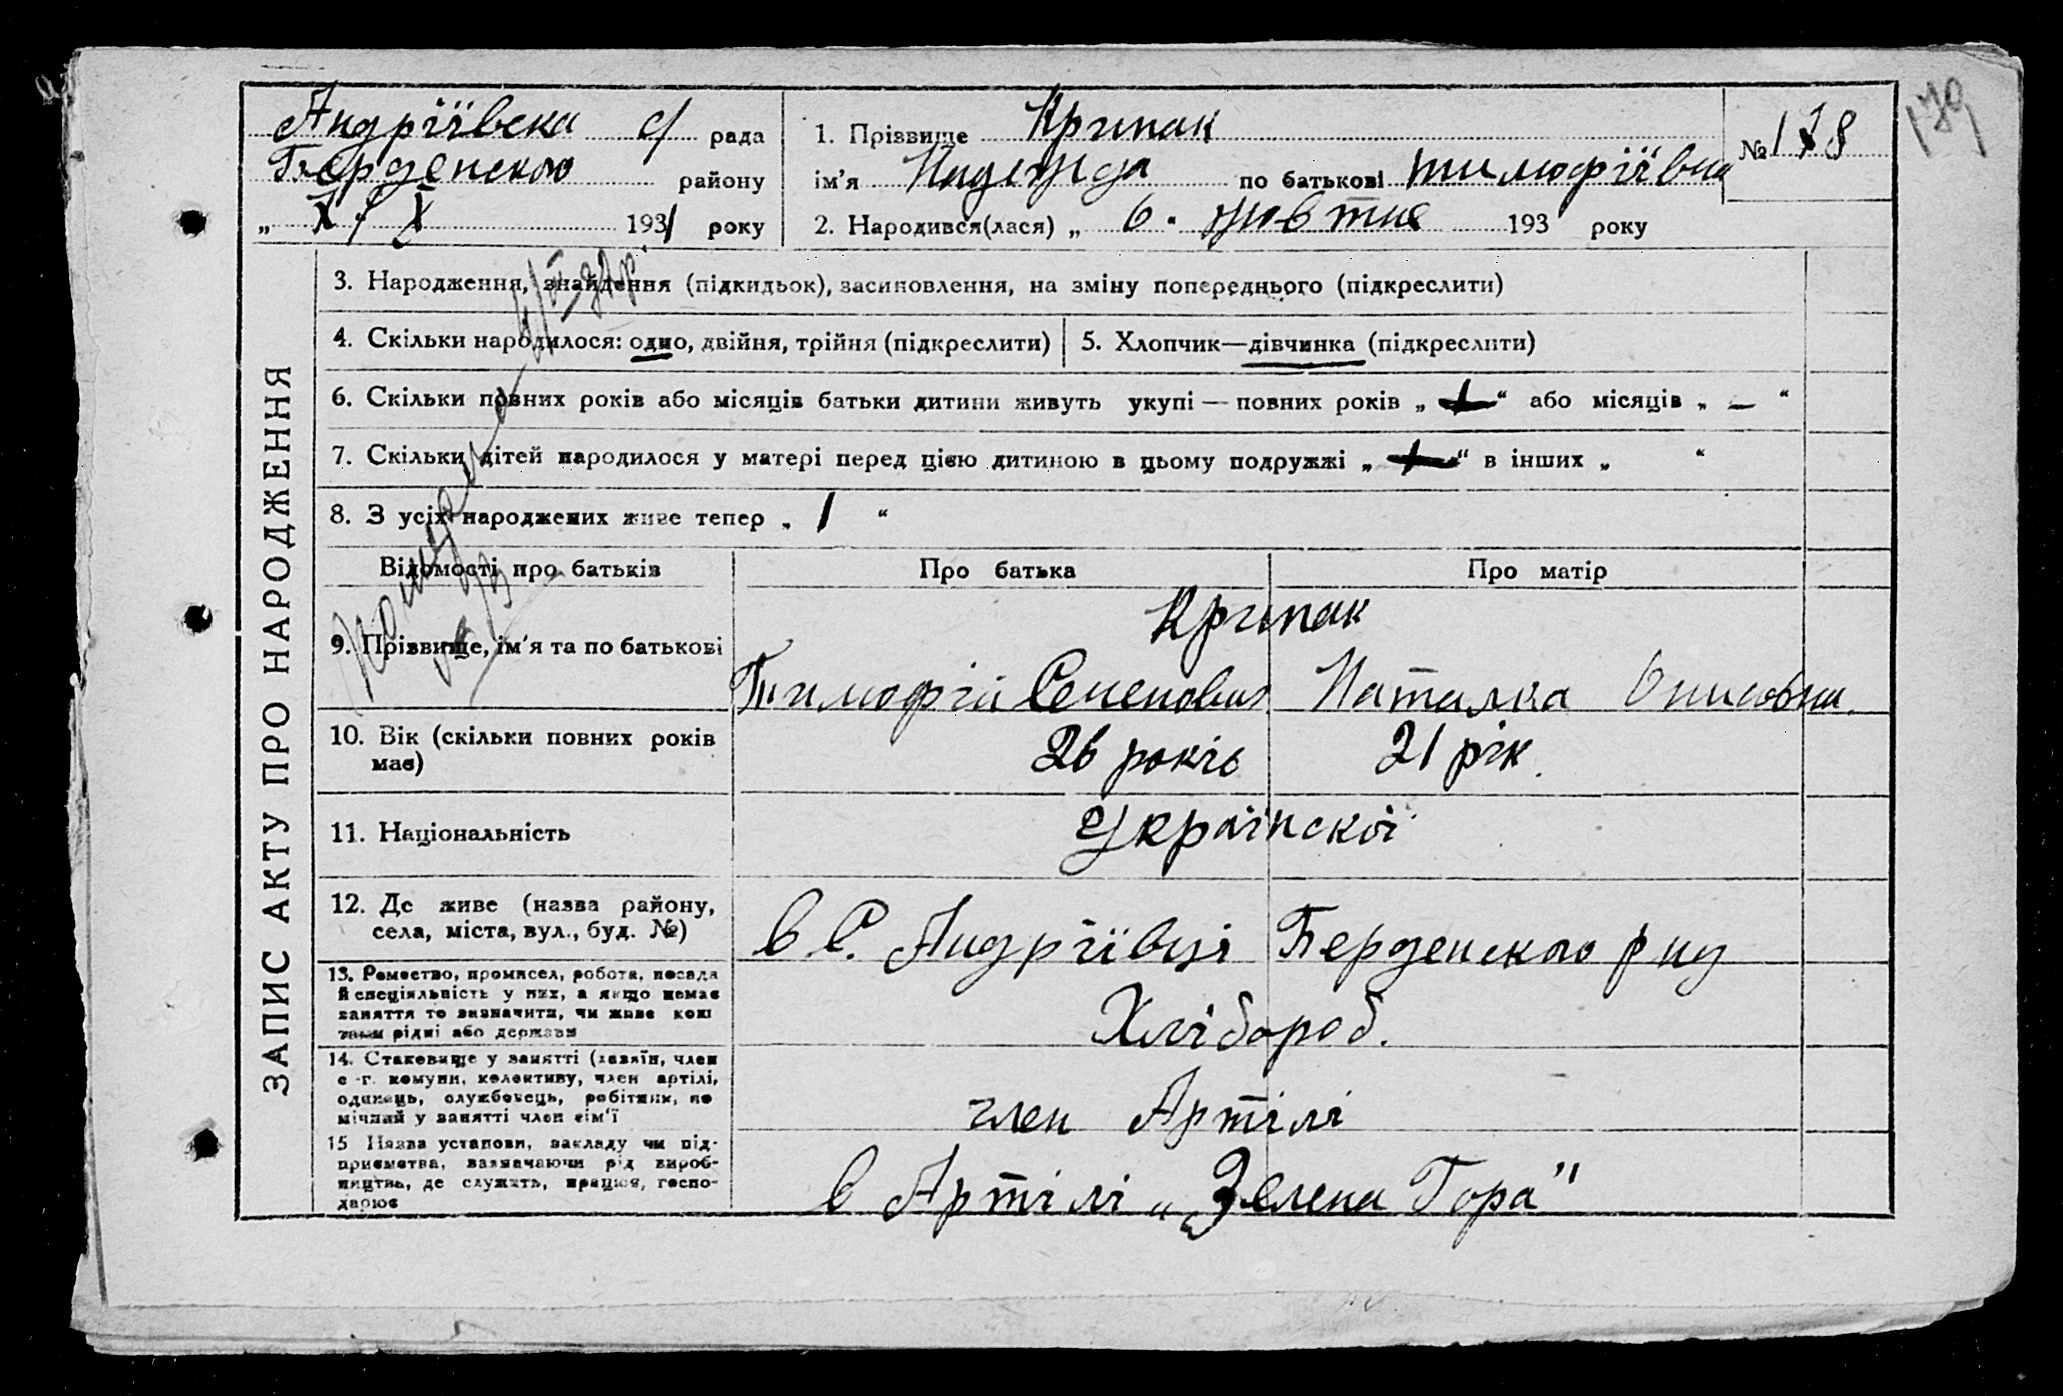 179
Андріївска с/ рада
Берденского району
„ X / X 1931 року
1. Прізвище Крипак
ім'я Надежда по батькові тимофіївна
№ 178
2. Народився(лася) „ 6 " жовтня 193 року
ЗАПИС АКТУ ПРО НАРОДЖЕННЯ
3. Народження, знайдення (підкидьок), засиновлення, на зміну попереднього (підкреслити)
4. Скільки народилося: одно, двійня, трійня (підкреслити)
5. Хлопчик—дівчинка (підкреслити)
6. Скільки повних років або місяців батьки дитини живуть укупі — повних років „ 1 “ або місяців „ — “
7. Скільки дітей народилося у матері перед цією дитиною в цьому подружжі „ “ в інших „ “
8. З усіх народжених живе тепер „ 1 “
Відомості про батьків
Про батька
Про матір
9. Прізвище, ім'я та по батькові
Крипак
Тимофій Семенович
Наталка Онисовна
10. Вік (скільки повних років має)
26 років
21 рік.
11. Національність
Українскої
12. Де живе (назва району, села, міста, вул., буд. №)
в с. Андріївці Берденского рну
13. Ремество, промисел, робота, посада
й спеціяльність у них, а якщо немає
заняття то визначити, чи живе коштами
рідні або держави
Хлібороб.
14. Становище у занятті (хазяїн, член
с.-г. комуни, колективу, член артілі,
одинець, службовець, робітник, помічний
у занятті член сім'ї
член Артілі
15 Назва установи, закладу чи підприємства,
зазначаючи рід виробництва,
де служить, працює, господарює
в Артілі „Зелена Гора"